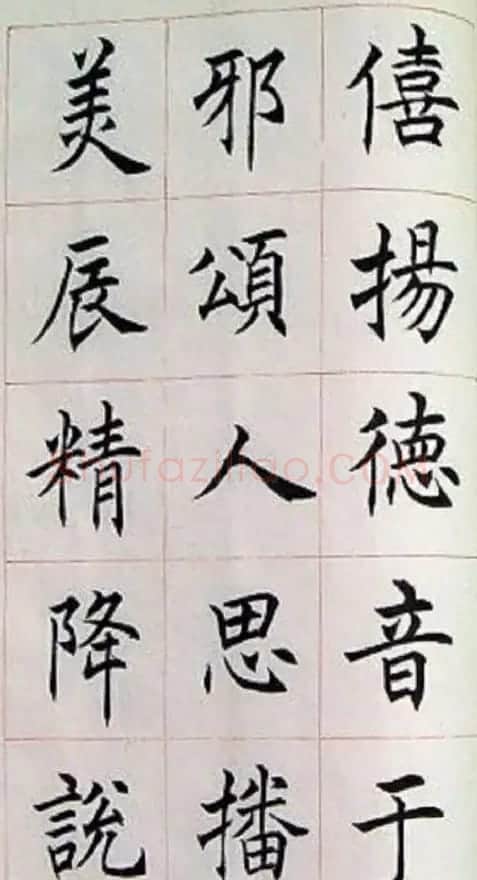 僖揚德音于
邪頌人思播
美辰精降說
shufaziliao.COM